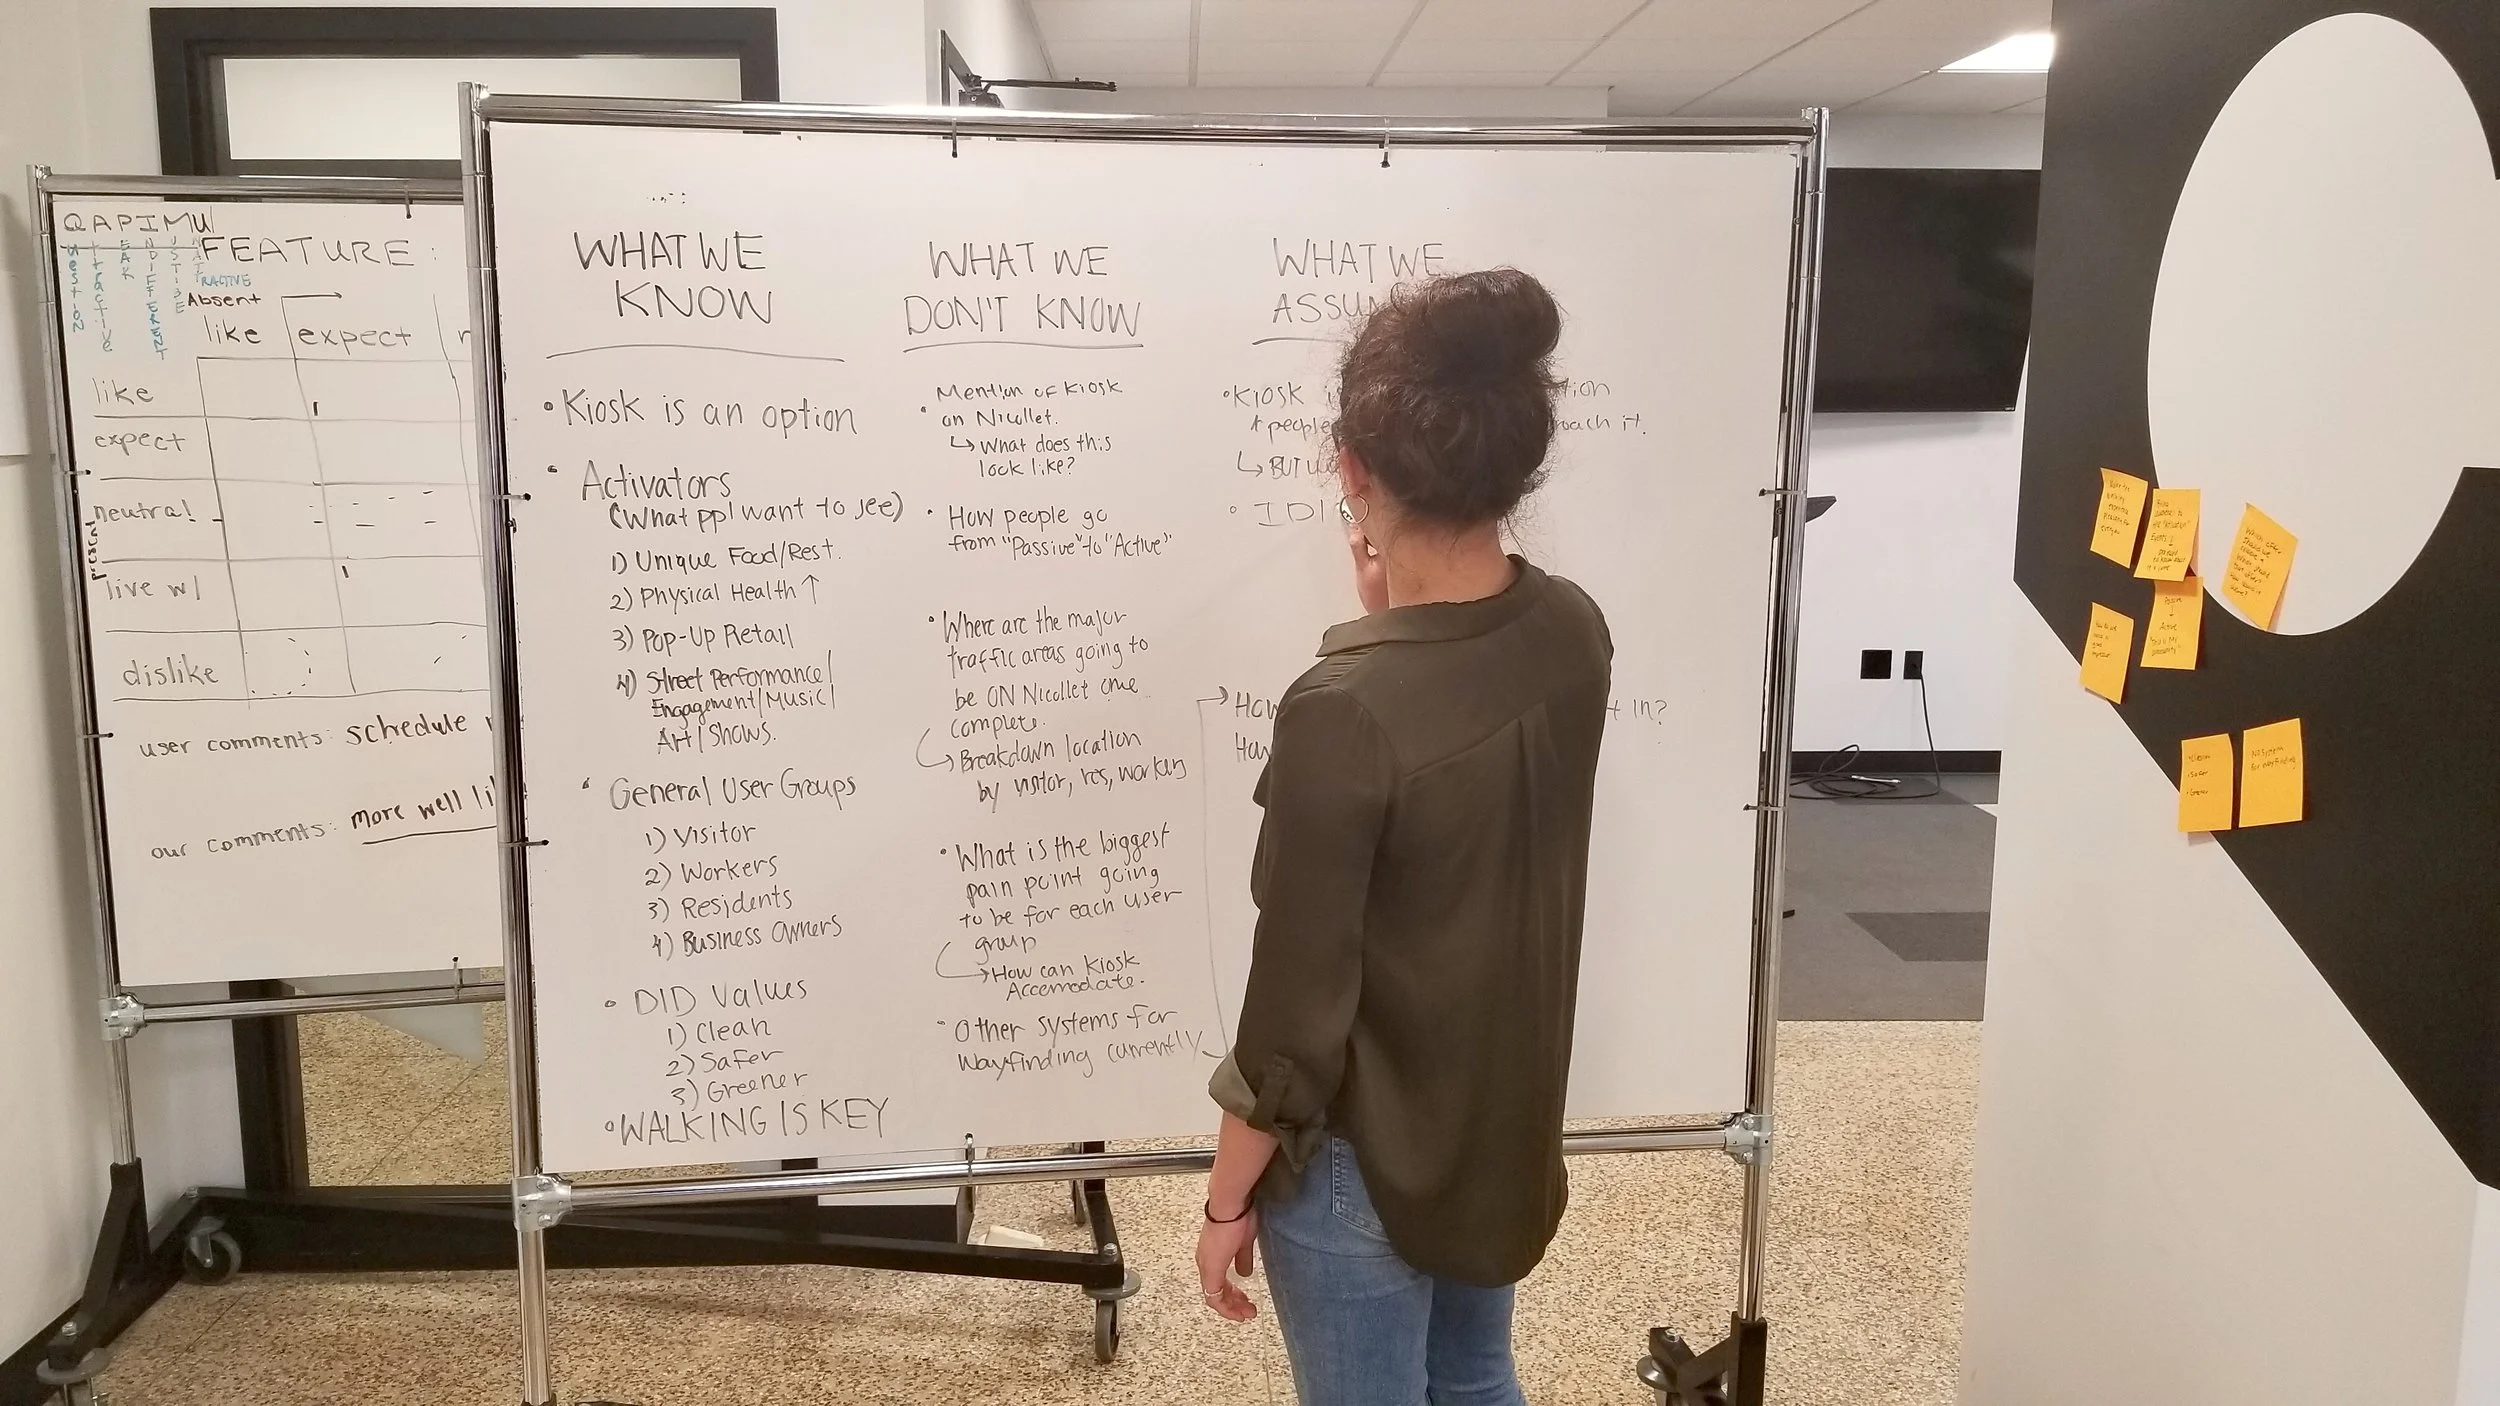 QAPIMU
FEATURE:
Absent
like
expect
like
expect
neutral
present
live w/
dislike
user comments: schedule
our comments: more well li
WHAT WE
KNOW
• Kiosk is an option
• Activators
(What ppl want to see)
1) Unique Food/Rest.
2) Physical Health ↑
3) Pop-Up Retail
4) Street Performance/
Engagement/Music/
Art/Shows.
• General User Groups
1) Visitor
2) Workers
3) Residents
4) Business Owners
• DID Values
1) Clean
2) Safer
3) Greener
• WALKING IS KEY
WHAT WE
DON'T KNOW
Mention of Kiosk
• on Nicollet.
↳ What does this
look like?
• How people go
from "Passive" to "Active"
• Where are the major
traffic areas going to
be ON Nicollet once
complete.
↳ Breakdown location
by visitor, res, working
• What is the biggest
pain point going
to be for each user
group
→ How can Kiosk
Accomodate.
• Other systems for
wayfinding currently
WHAT WE
ASSUM
• Kiosk i tion
people oach it.
↳ BUT
• IDI
→ How t in?
How
No system
for wayfinding